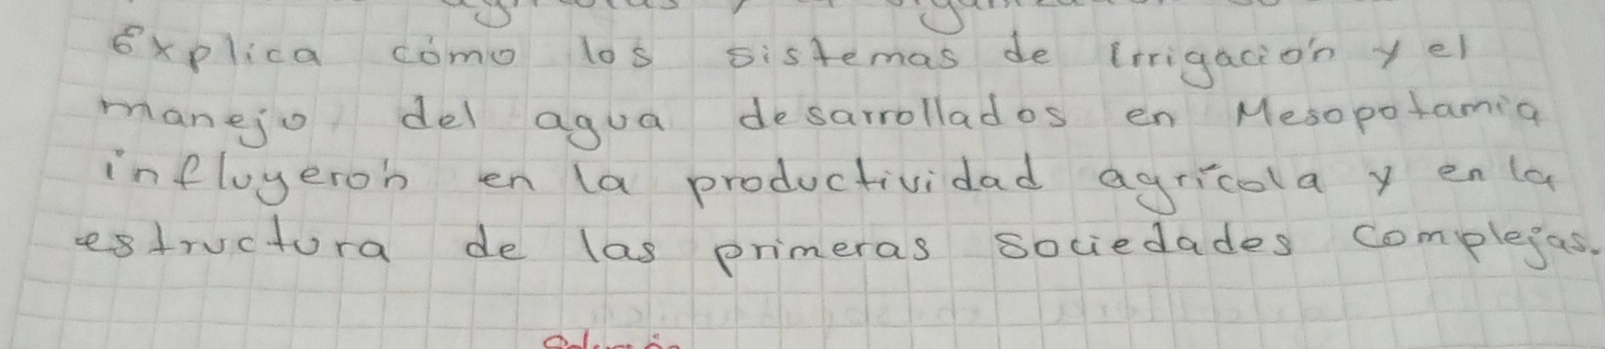 Explica cómo los sistemas de irrigación y el
manejo del agua desarrollados en Mesopotamia
influyerón en la productividad agrícola y en la
estructura de las primeras sociedades complejas.